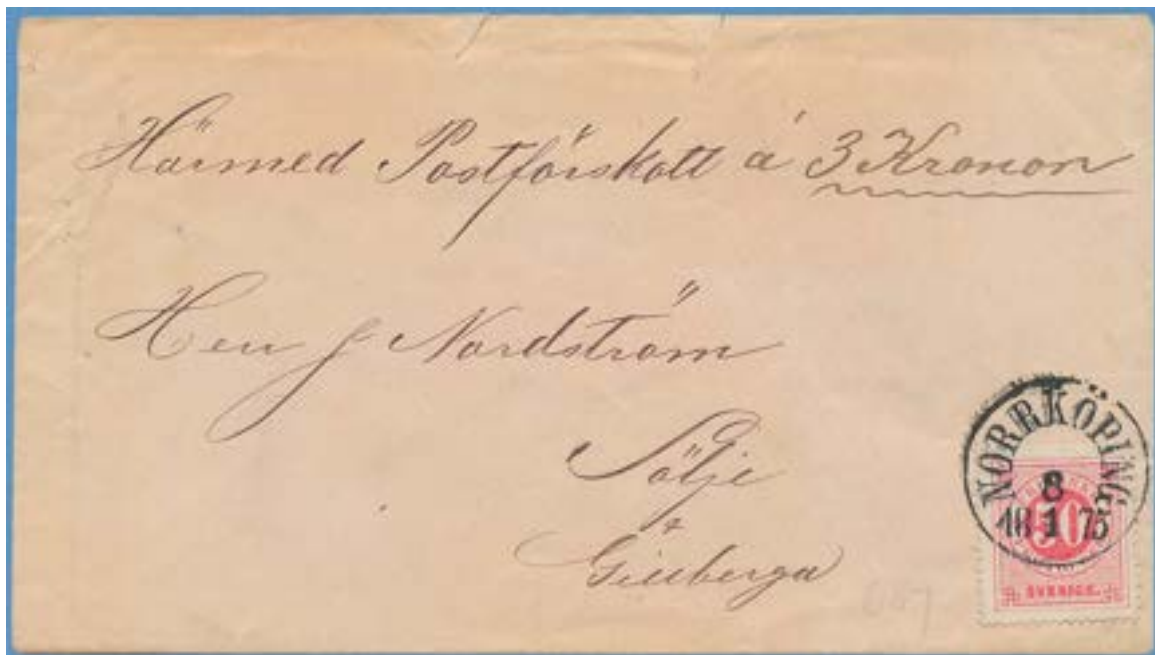 Härmed Postförskott á 3 Kronor
Herr J Nordström
Sölje
Gillberga
NORRKÖPING
8
18 1 75
50
SVERIGE.